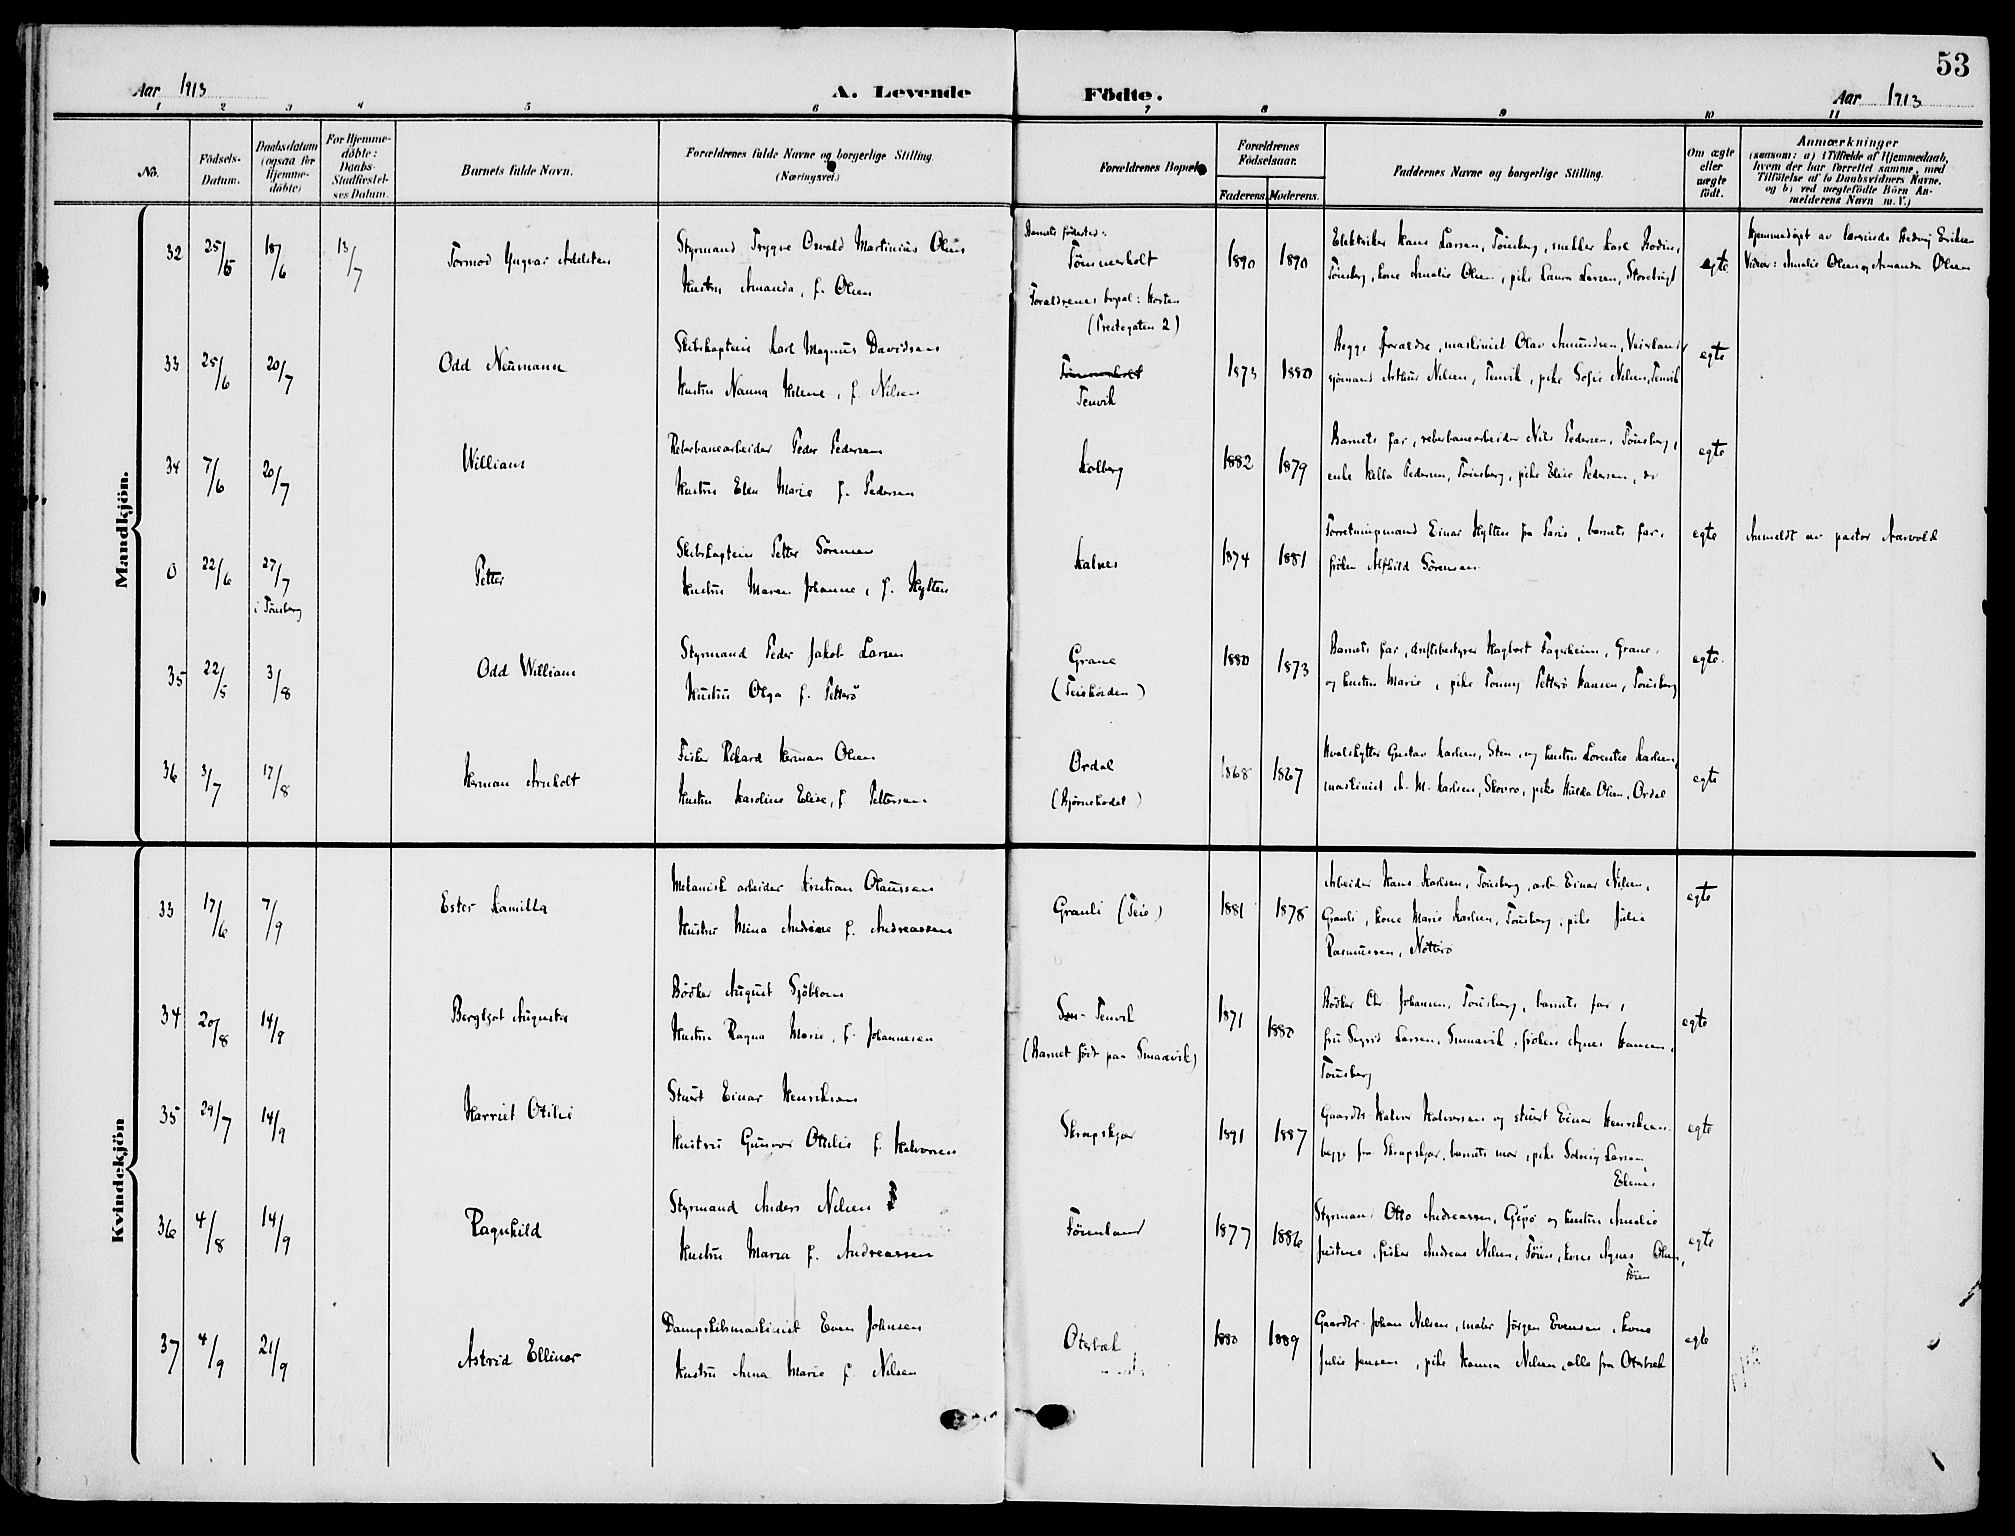 53
Aar 1913
A. Levende
Födte.
Aar 1913
1 2 3 4 5 6 7 8 9 10 11
No.
Födsels-
Datum.
Daabsdatum
(ogsaa for
Hjemme-
döbte)
For Hjemme-
döbte:
Daabs-
Stadfæstel-
ses Datum.
Barnets fulde Navn.
Forældrenes fulde Navne og borgerlige Stilling.
(Næringsvei.)
Forældrenes Bopæl
Forældrenes
Födselsaar.
Faderens. Moderens.
Faddernes Navne og borgerlige Stilling.
Om ægte
eller
uægte
født.
Anmærkninger
(saasom: a) i Tilfælde af Hjemmedaab,
hvem der har forrettet samme, med
Tilföielse af to Daabsvidners Navne,
og b) ved uægtefödte Börn An-
melderens Navn m. V.)
Mandkjön.
32 25/5 18/6 13/7
Tormod Yngvar Adelsten
Styrmand Trygve Osvald Martinius Olsen
Hustru Amanda, f. Olsen
Barnets fødested:
Tömmerholt
Forældrenes bopæl: Horten
1890 1890
Elektriker Hans Larsen, Tönsberg, snekker Karl Bodin,
Tönsberg, kone Amalie Olsen, pike Laura Larsen,
egte
Hjemmedöpt av lærerinde Hedvig Eriksen
Vidner: Amalie Olsen og Amanda Olsen
33 25/6 20/7
Odd Neumann
Skibskaptein Karl Magnus Davidsen
Hustru Nanna Helene, f. Nilsen
Tömmerholt
Tenvik
1873 1880
Begge forældre, maskinist Olav Amundsen,
sjömand Arthur Nilsen, Tenvik, pike Sofie Nilsen, Tenvik
egte
34 7/6 20/7
William
Reberbanearbeider Peder Pedersen
Hustru Elen Marie f. Pedersen
Kolberg
1882 1879
Barnets far, reberbanearbeider Nils Pedersen, Tönsberg,
enke Pedersen, Tönsberg, pike Elise Pedersen, do
egte
0 22/6 27/7
i Tönsberg
Petter
Skibskaptein Petter Sörensen
Hustru Maren Johanne, f. Hylten
Kalnes
1874 1881
Forretningsmand Einar Hylten fra Paris, barnets far,
fröken Alfhild Sörensen
egte
Anmeldt av pastor Aarvold
35 22/5 3/8
Odd William
Styrmand Peder Jakob Larsen
Hustru Olga f. Petterö
Grane
(Teieskoiden)
1880 1873
Barnets far, driftsbestyrer Hagbart Fagerheim, Grane,
og hustru Marie, pike Tonny Petterö Hansen, Tönsberg
egte
36 3/7 17/8
Herman Arnholt
Fisker Rikard Herman Olsen
Hustru Karoline Elise, f. Pettersen
Ordal
(Bjørnskodal)
1868 1867
Hvalskytter Gustav Karlsen, Sten, og hustru Lorentse Karlsen,
maskinist A. M. Karlsen, pike Hulda Olsen, Ordal
egte
Kvindekjön
33 17/6 7/9
Ester Kamilla
Mekanisk arbeider Kristian Olaussen
Hustru Mina Andrine f. Andreassen
Granli (Teie)
1881 1878
Arbeider Hans Karlsen, Tönsberg, arb. Einar Nilsen,
Granli, kone Marie Karlsen, Tönsberg, pike Julie
Rasmussen, Nötterö
egte
34 20/8 14/9
Bergljot Augusta
Bödker August Sjöblom
Hustru Ragna Marie, f. Johannesen
Sön-Tenvik
(Barnet född paa Smaavik)
1871 1880
Bödker Chr. Johansen, Tönsberg, barnets far,
fru Sigrid Larsen, Smaavik, fröken Agnes Hansen,
Tönsberg
egte
35 29/7 14/9
Harriet Otilie
Stuert Einar Henriksen
Hustru Gunvor Otilie f. Halvorsen
Skrapskjær
1891 1887
Gaardbr. Halvor Halvorsen og stuert Einar Henriksen
begge fra Skrapskjær, barnets mor, pike Solveig Larsen,
egte
36 4/8 14/9
Ragnhild
Styrmand Anders Nilsen
Hustru Maria f. Andreassen
Föienland
1877 1886
Styrmand Otto Andreassen, Gipö og hustru Amalie
Justine, fisker Andreas Nilsen, Föien, kone Agnes Olsen,
Föien
egte
37 4/9 21/9
Astrid Ellinor
Dampskibsmaskinist Even Johnsen
Hustru Anna Marie f. Nilsen
Oterbæk
1880 1889
Gaardbr. Johan Nilsen, maler Jörgen Evensen, kone
Julie Jensen, pike Hanna Nilsen, alle fra Oterbæk
egte